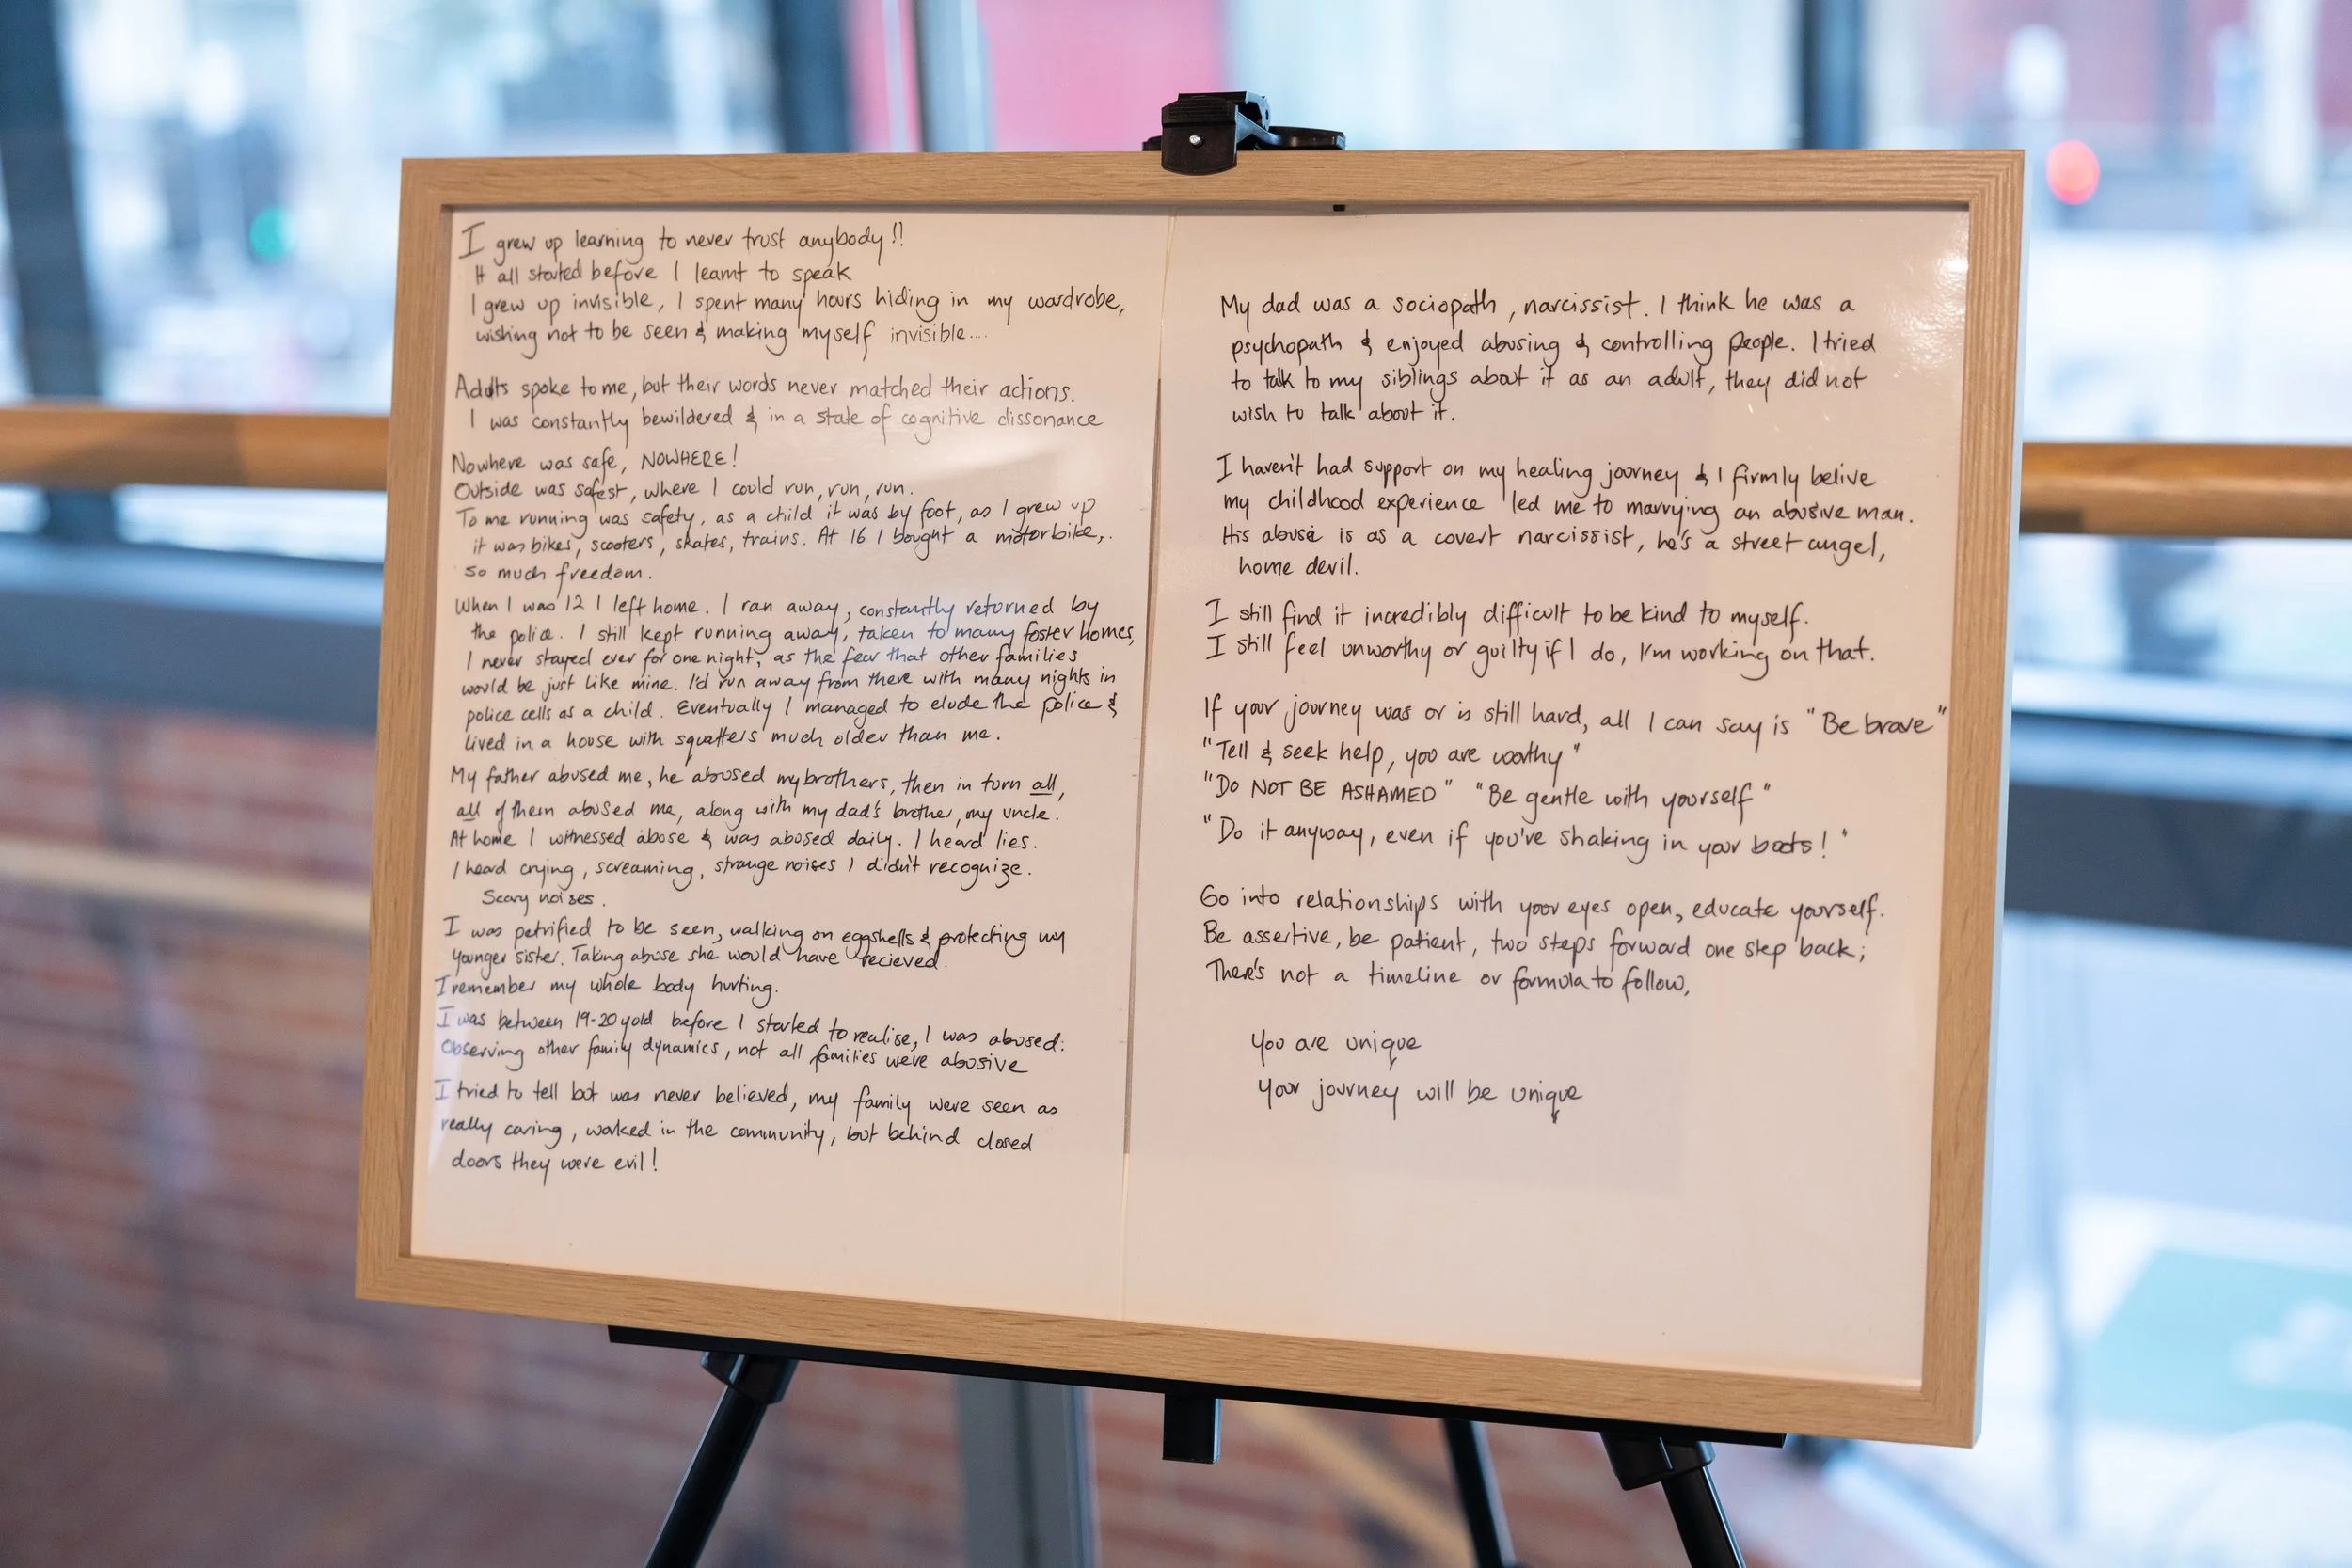 I grew up learning to never trust anybody!!
It all started before I learnt to speak
I grew up invisible, I spent many hours hiding in my wardrobe,
wishing not to be seen & making myself invisible....
Adults spoke to me, but their words never matched their actions.
I was constantly bewildered & in a state of cognitive dissonance
Nowhere was safe, NOWHERE!
Outside was safest, where I could run, run, run.
To me running was safety, as a child it was by foot, as I grew up
it was bikes, scooters, skates, trains. At 16 I bought a motorbike,.
so much freedom.
When I was 12 I left home. I ran away, constantly returned by
the police. I still kept running away, taken to many foster homes,
I never stayed ever for one night, as the fear that other families
would be just like mine. I'd run away from there with many nights in
police cells as a child. Eventually I managed to elude the police &
lived in a house with squatters much older than me.
My father abused me, he abused my brothers, then in turn all,
all of them abused me, along with my dad's brother, my uncle.
At home I witnessed abuse & was abused daily. I heard lies.
I heard crying, screaming, strange noises I didn't recognize.
Scary noises.
I was petrified to be seen, walking on eggshells & protecting my
younger sister. Taking abuse she would have recieved.
I remember my whole body hurting.
I was between 19-20yold before I started to realise, I was abused:
Observing other family dynamics, not all families were abusive
I tried to tell but was never believed, my family were seen as
really caring, worked in the community, but behind closed
doors they were evil!
My dad was a sociopath, narcissist. I think he was a
psychopath & enjoyed abusing & controlling people. I tried
to talk to my siblings about it as an adult, they did not
wish to talk about it.
I haven't had support on my healing journey & I firmly belive
my childhood experience led me to marrying an abusive man.
His abuse is as a covert narcissist, he's a street angel,
home devil.
I still find it incredibly difficult to be kind to myself.
I still feel unworthy or guilty if I do, I'm working on that.
If your journey was or is still hard, all I can say is "Be brave"
"Tell & seek help, you are worthy"
"Do NOT BE ASHAMED" "Be gentle with yourself"
"Do it anyway, even if you've shaking in your boots!"
Go into relationships with your eyes open, educate yourself.
Be assertive, be patient, two steps forward one step back;
There's not a timeline or formula to follow,
You are unique
Your journey will be unique